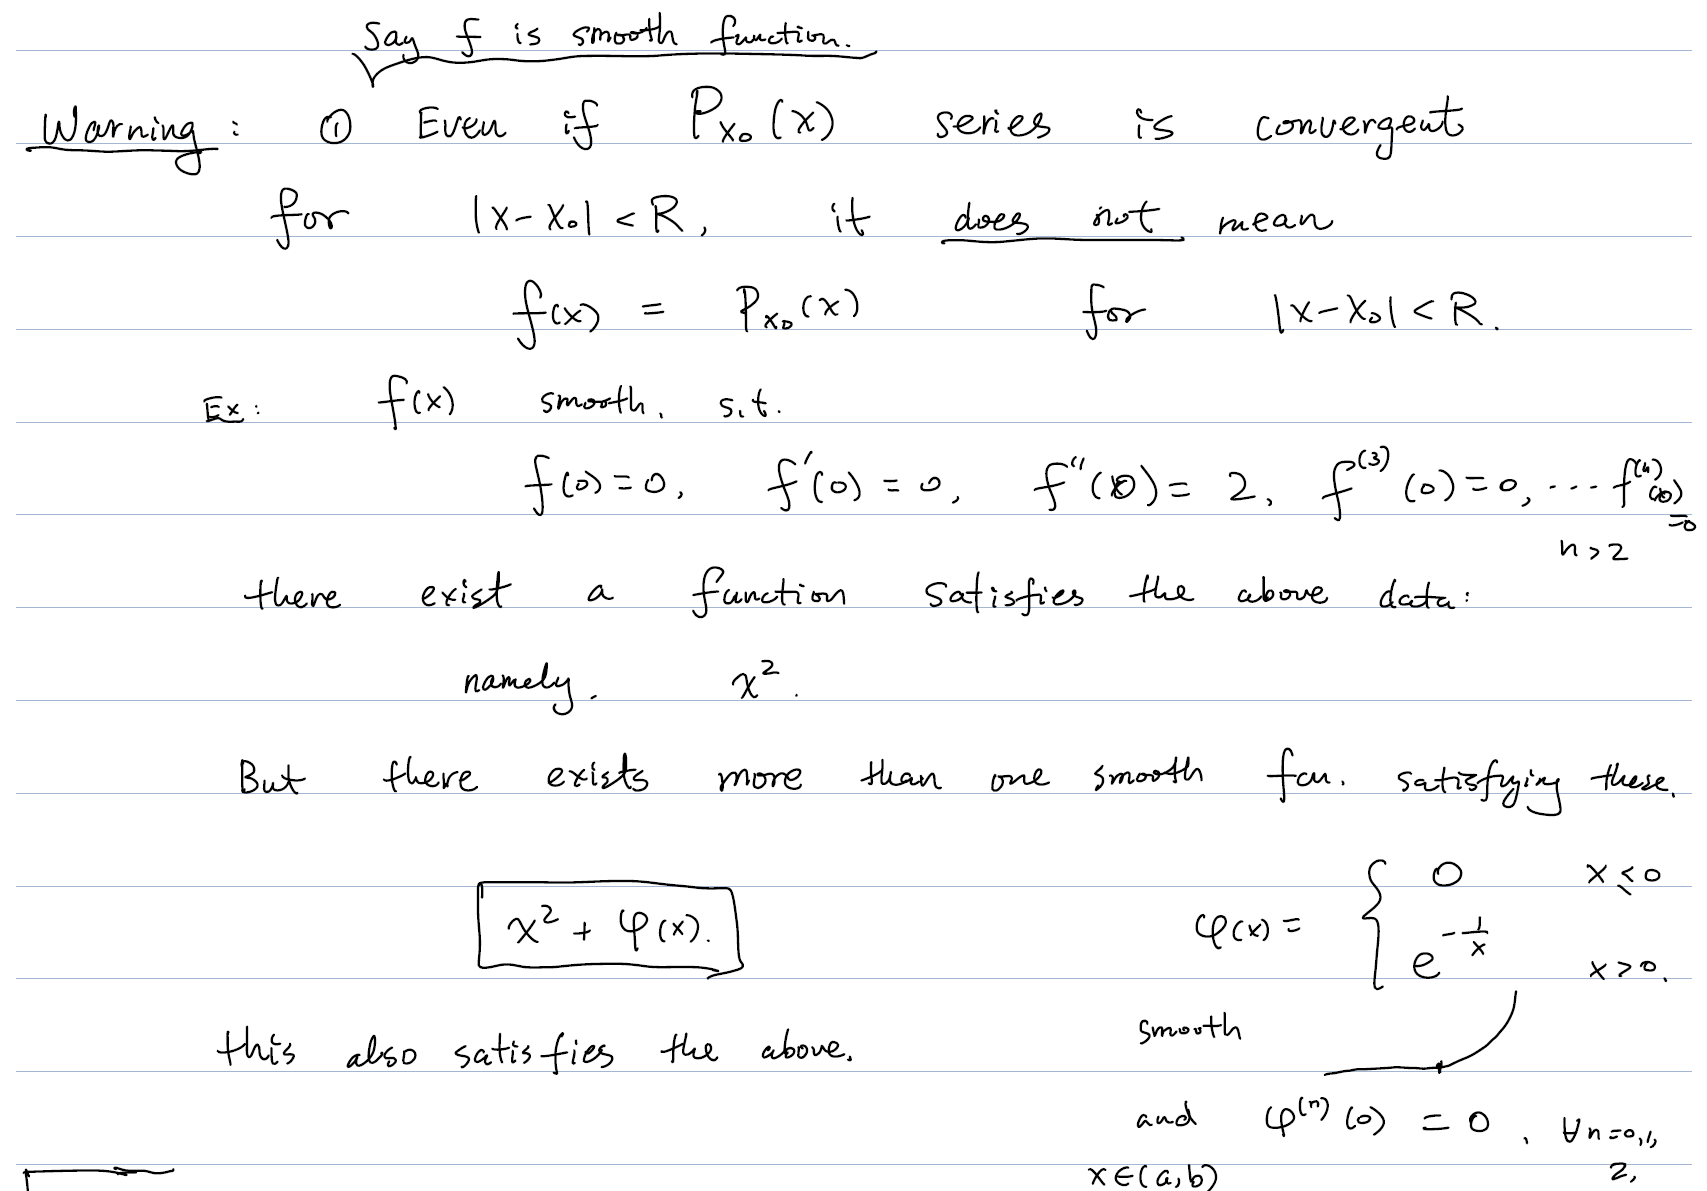 Say f is smooth function.
Warning: ① Even if P_{x₀}(x) series is convergent
for |x-x₀| < R, it does not mean
f(x) = P_{x₀}(x) for |x-x₀| < R.
Ex: f(x) smooth, s.t.
f(0)=0, f'(0)=0, f''(0)=2, f⁽³⁾(0)=0, ... f⁽ⁿ⁾(0)=0
n>2
there exist a function satisfies the above data:
namely. x².
But there exists more than one smooth fcn. satisfying these.
x² + φ(x).
φ(x) = { 0 x≤0
e^{-1/x} x>0.
this also satisfies the above.
smooth
and φ⁽ⁿ⁾(0) = 0, ∀n=0,1,
2,
x∈(a,b)